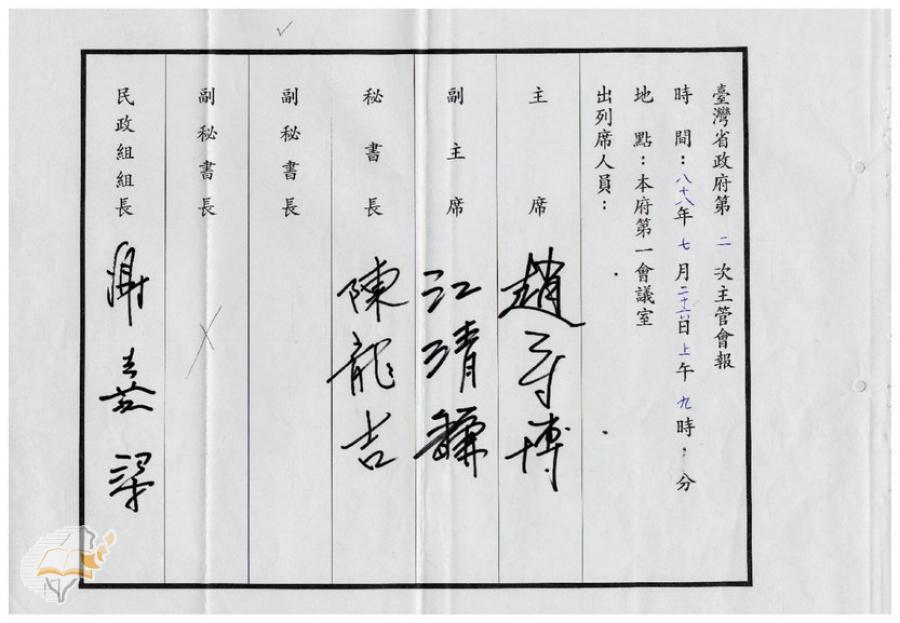 臺灣省政府第二次主管會報
時間：八十八年七月二十六日上午九時：分
地點：本府第一會議室
出列席人員：
主席 趙守博
副主席 江清馦
秘書長 陳龍吉
副秘書長
副秘書長
民政組組長 謝嘉梁